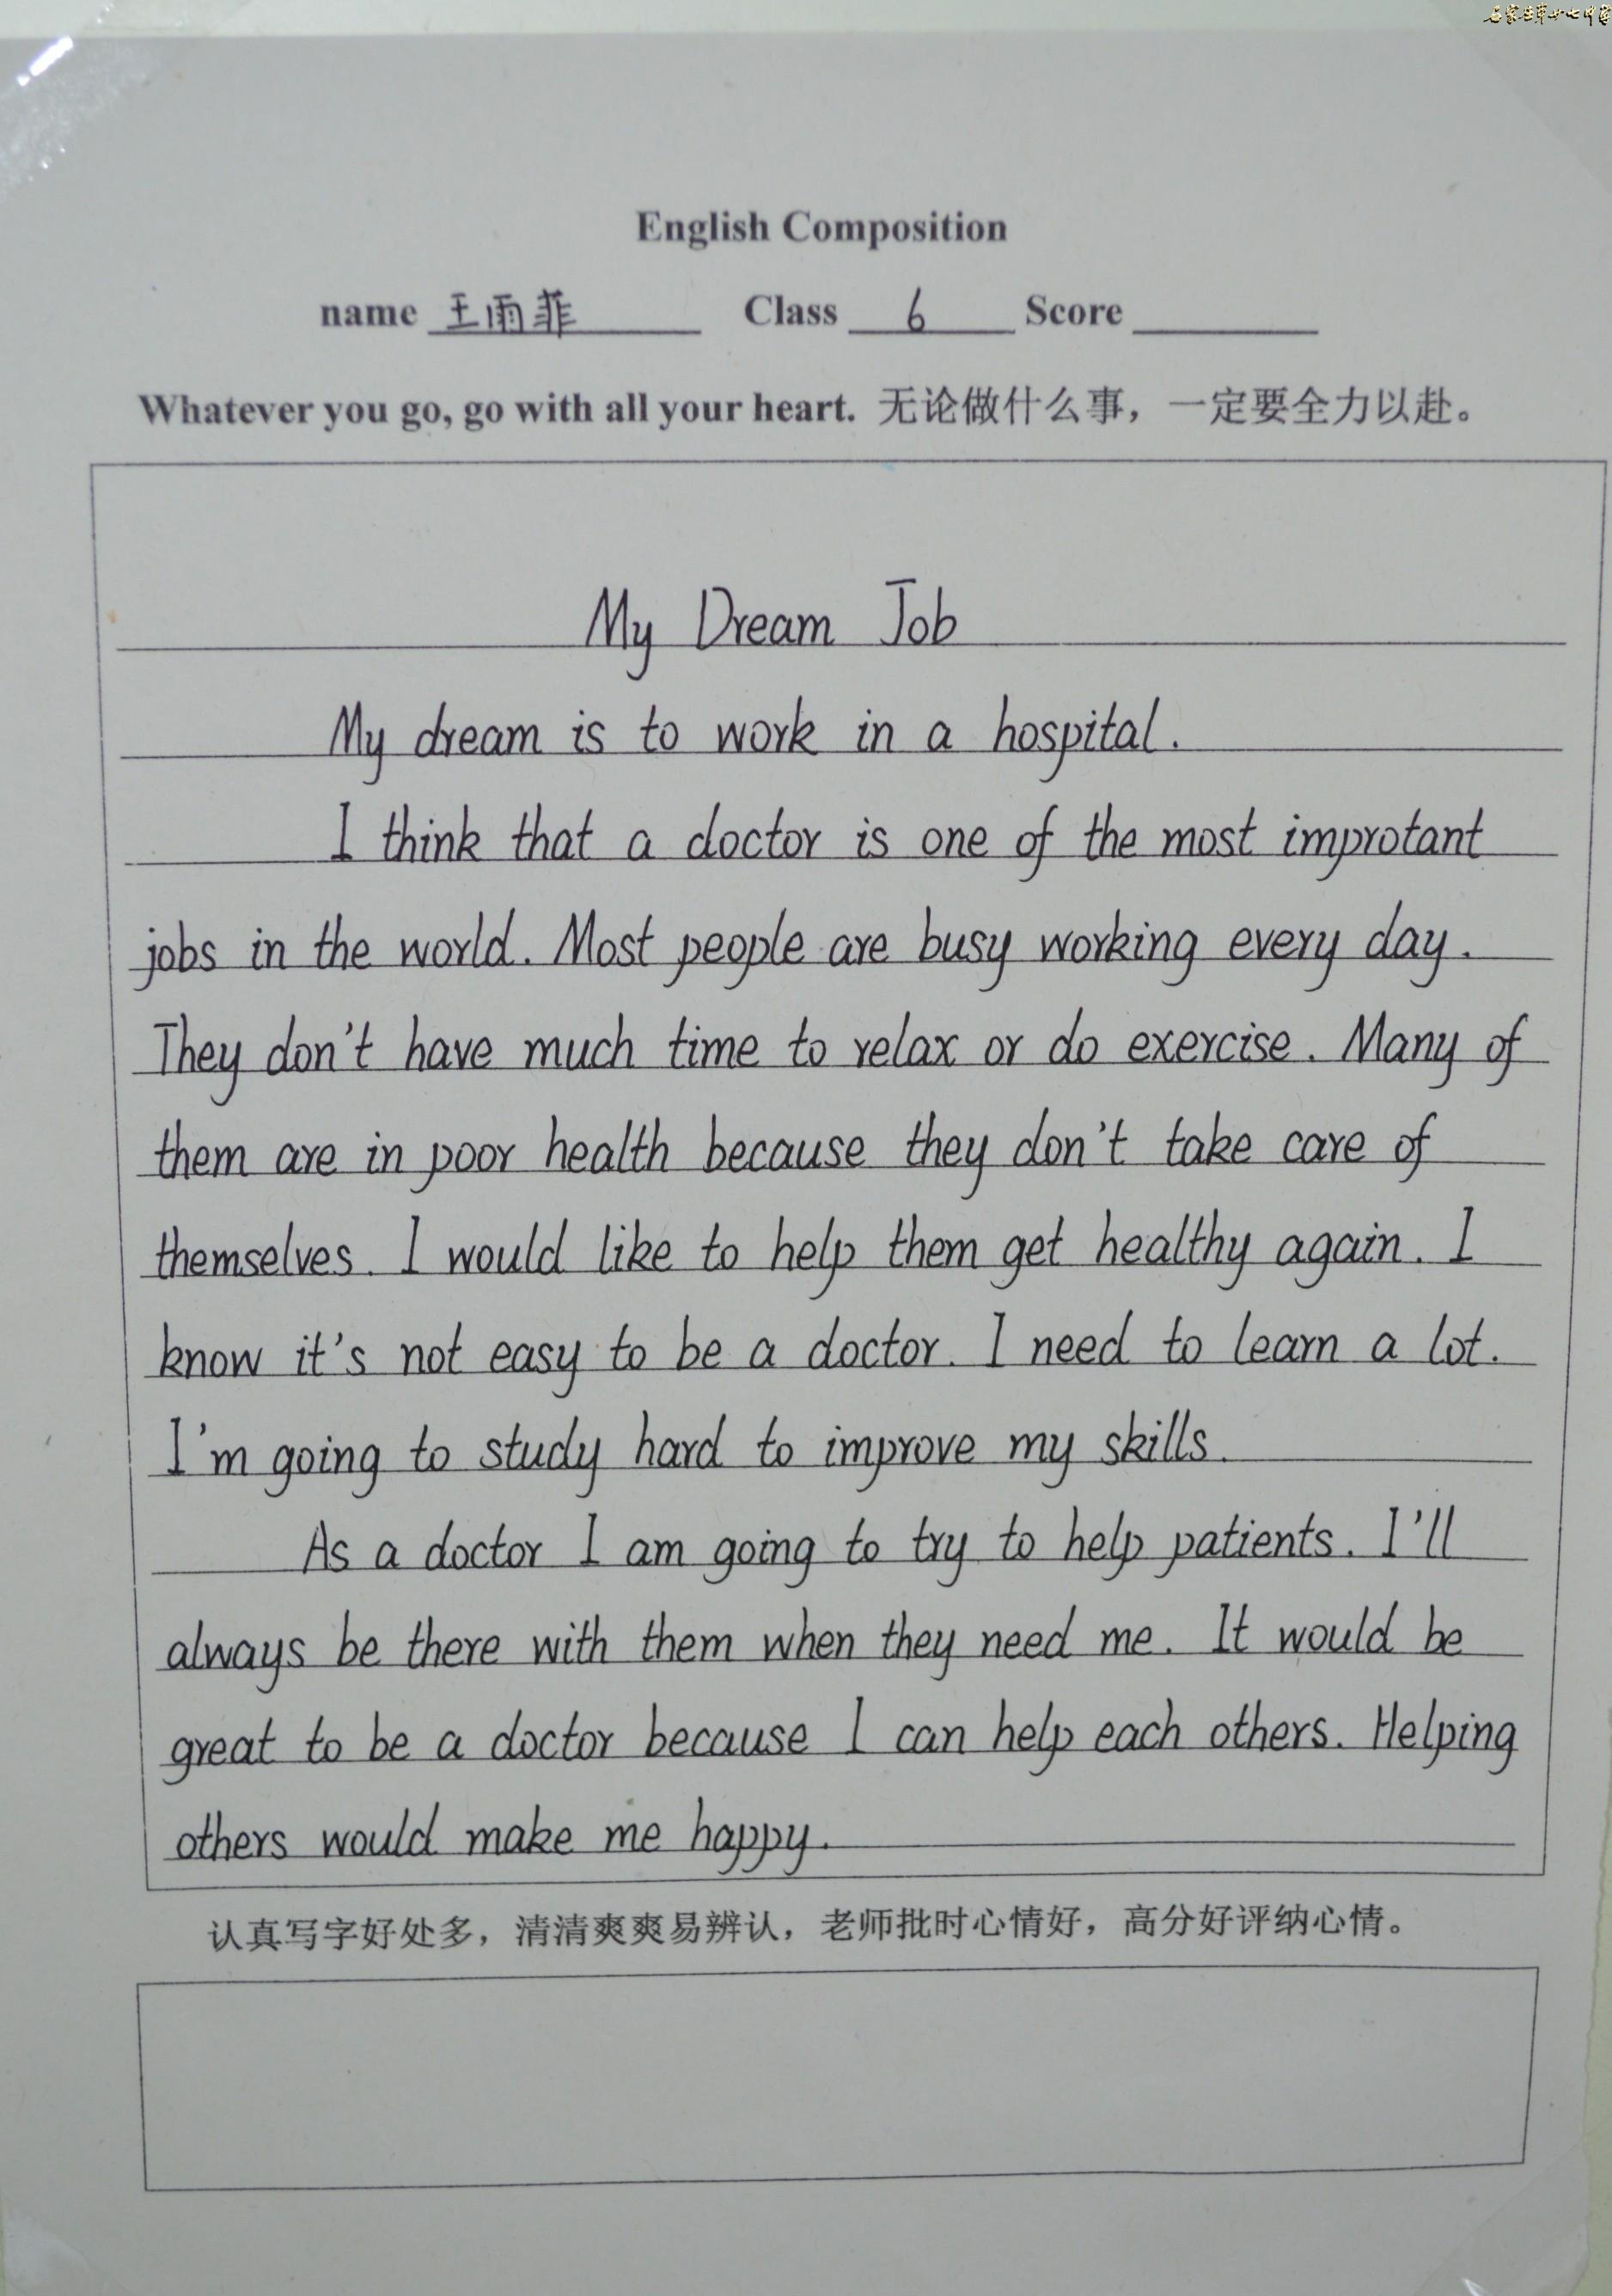 English Composition
name 王雨菲 Class 6 Score
Whatever you go, go with all your heart. 无论做什么事，一定要全力以赴。
My Dream Job
My dream is to work in a hospital.
I think that a doctor is one of the most improtant
jobs in the world. Most people are busy working every day.
They don't have much time to relax or do exercise. Many of
them are in poor health because they don't take care of
themselves. I would like to help them get healthy again. I
know it's not easy to be a doctor. I need to learn a lot.
I'm going to study hard to improve my skills.
As a doctor I am going to try to help patients. I'll
always be there with them when they need me. It would be
great to be a doctor because I can help each others. Helping
others would make me happy.
认真写字好处多，清清爽爽易辨认，老师批时心情好，高分好评纳心情。